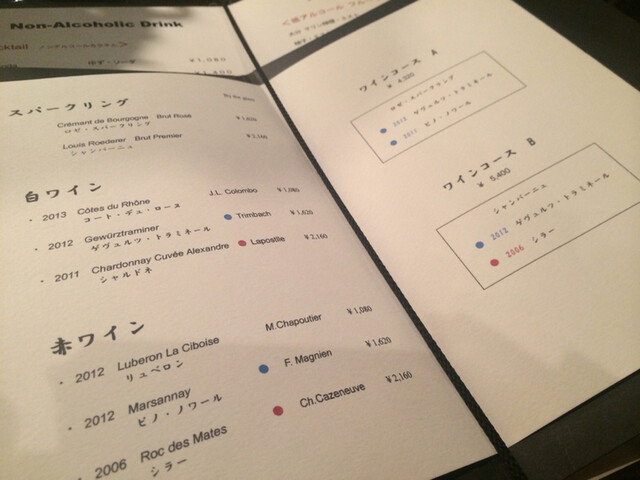 Non-Alcoholic Drink
cktail ノンアルコールカクテル>
ゆず・ソーダ ¥1,080
スパークリング By the glass
Crémant de Bourgogne Brut Rosé ¥1,620
ロゼ・スパークリング
Louis Roederer Brut Premier ¥2,160
シャンパーニュ
白ワイン
・ 2013 Côtes du Rhône J.L. Colombo ¥1,080
コート・デュ・ローヌ
・ 2012 Gewürztraminer Trimbach ¥1,620
ゲヴェルツ・トラミネール
・ 2011 Chardonnay Cuvée Alexandre Lapostlle ¥2,160
シャルドネ
赤ワイン
・ 2012 Luberon La Ciboise M.Chapoutier ¥1,080
リュベロン
・ 2012 Marsannay F. Magnien ¥1,620
ピノ・ノワール
・ 2006 Roc des Mates Ch.Cazeneuve ¥2,160
シラー
ワインコース A
¥ 4,320
ロゼ・スパークリング
2012 ゲヴェルツ・トラミネール
2011 ピノ・ノワール
ワインコース B
¥ 5,400
シャンパーニュ
2012 ゲヴェルツ・トラミネール
2006 シラー